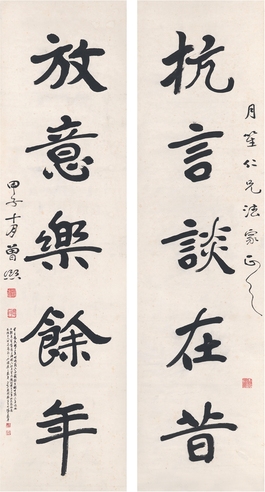 抗言談在昔
月笙仁兄法家正之
放意樂餘年
甲子十月曾熙